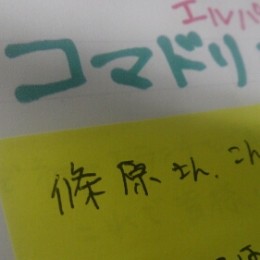 エルパ
コマドリ
條原さん、こん